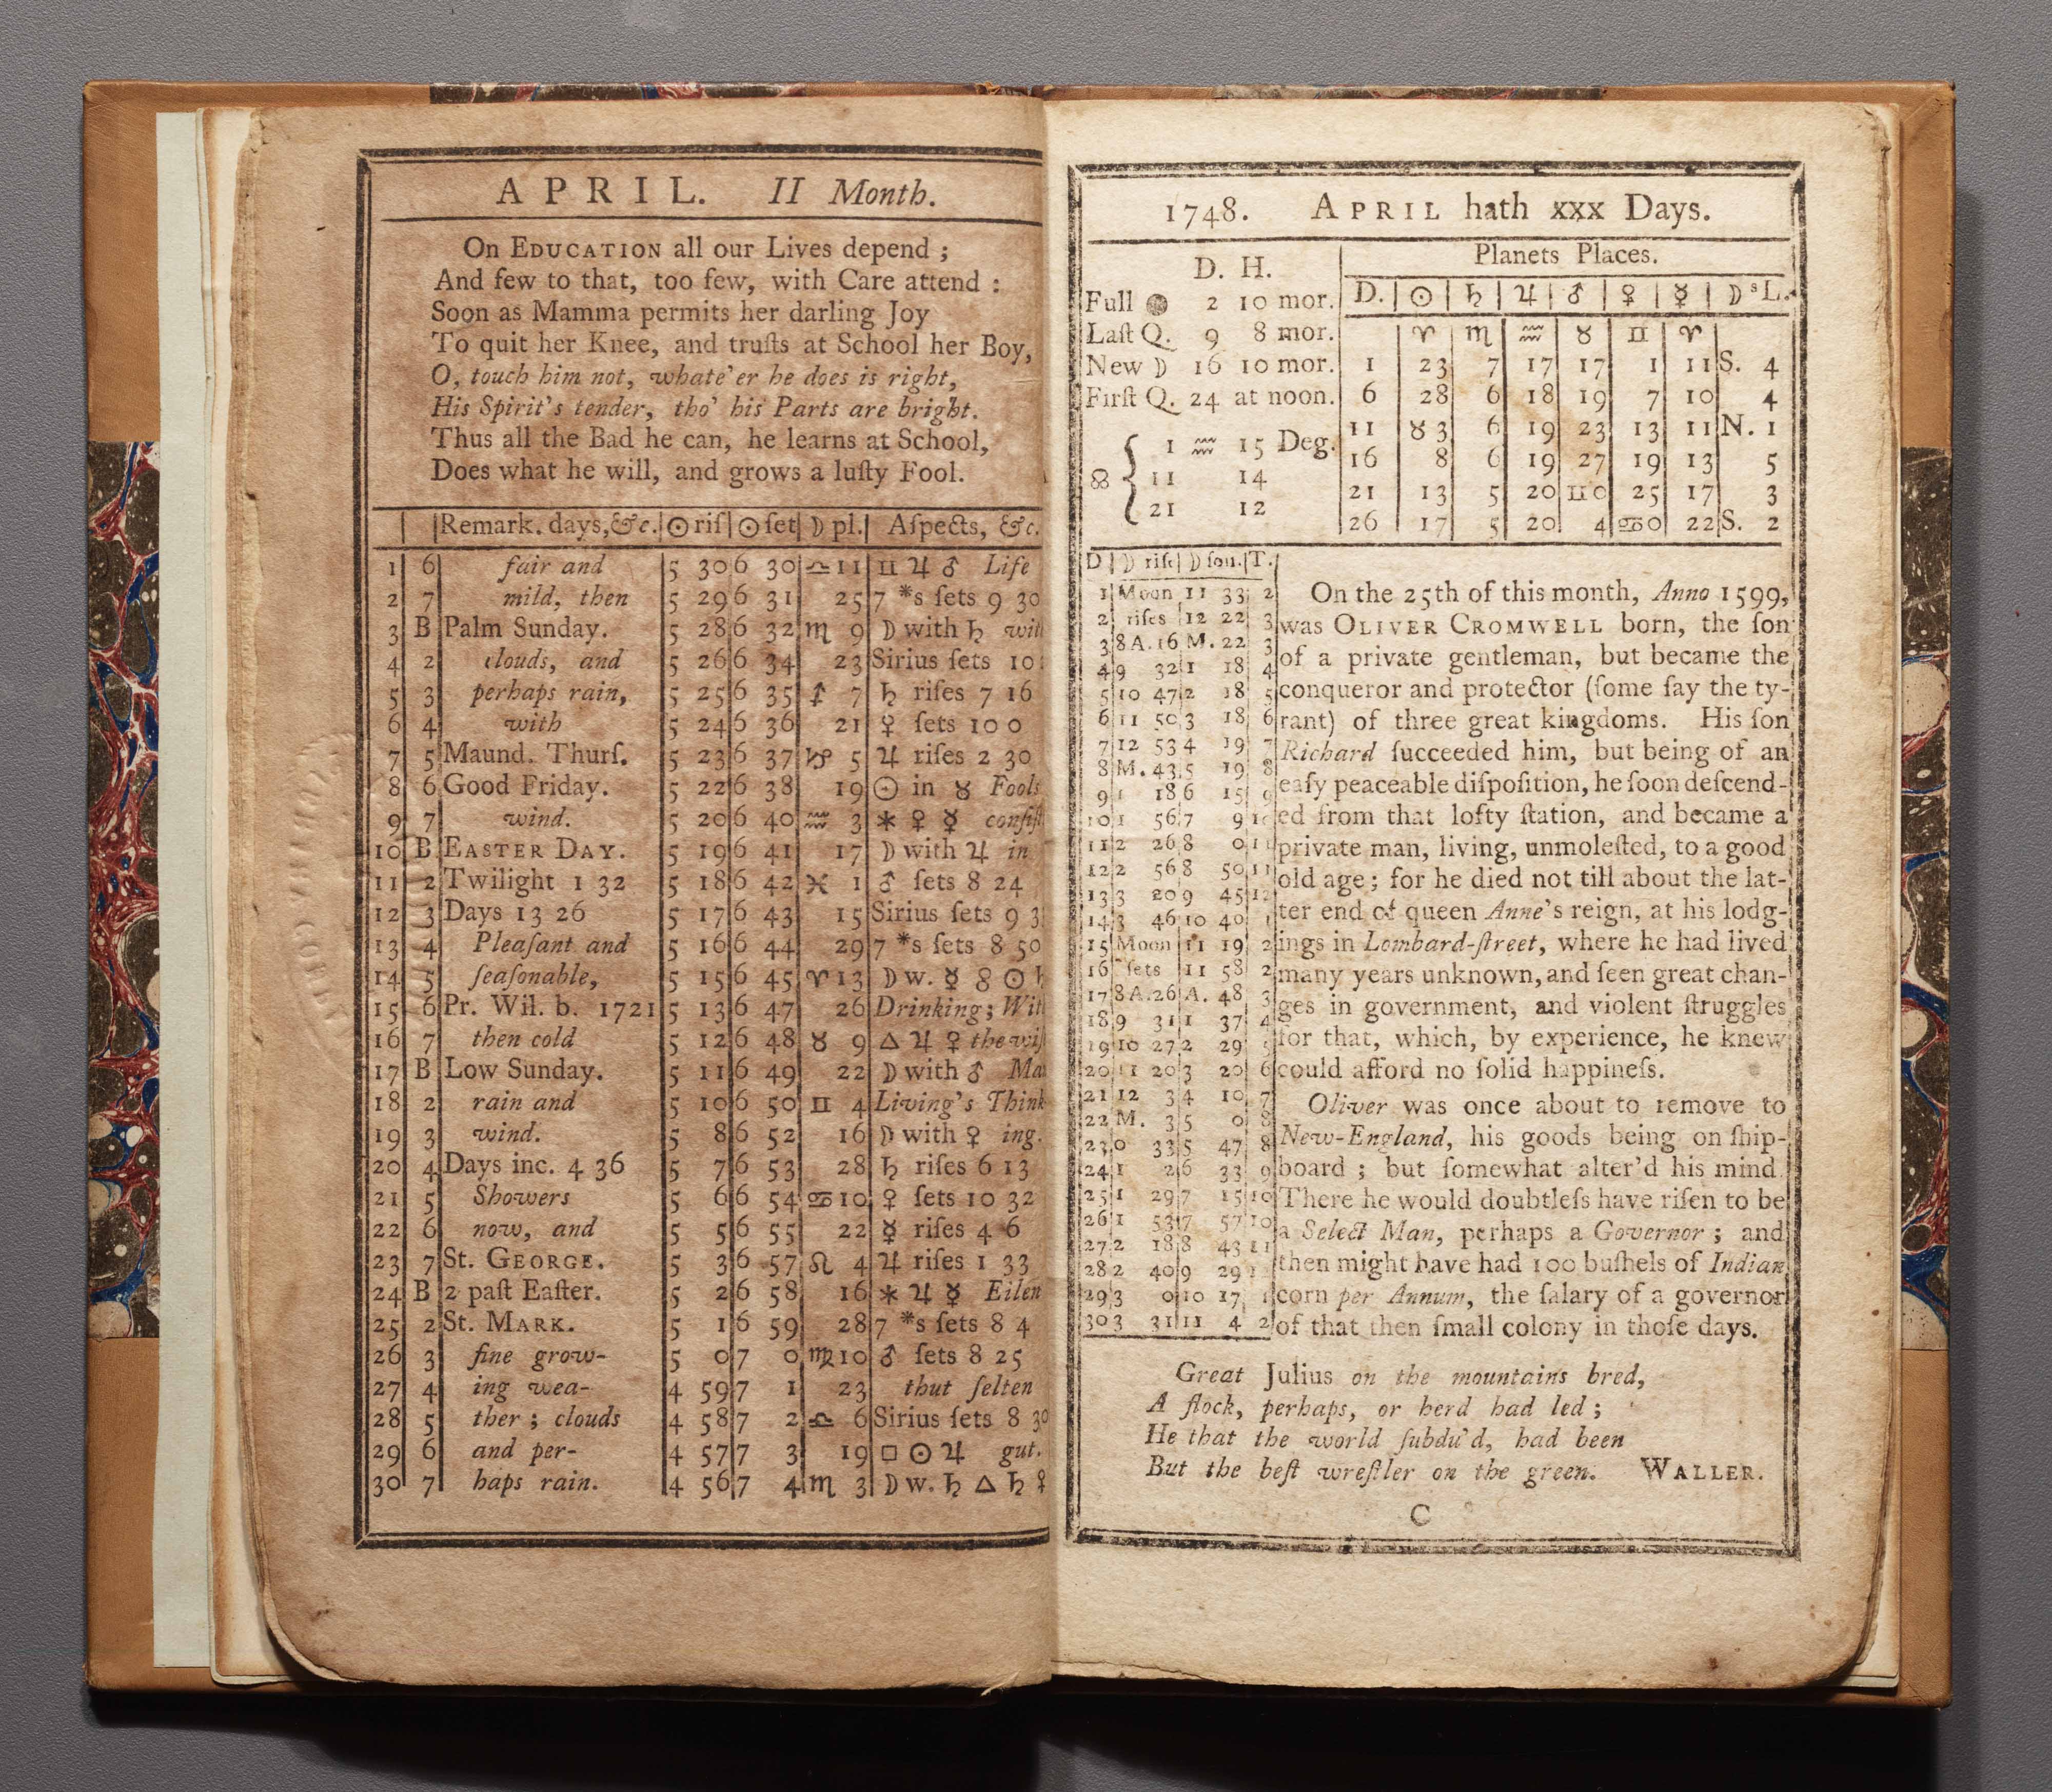 APRIL. II Month.
On EDUCATION all our Lives depend ;
And few to that, too few, with Care attend :
Soon as Mamma permits her darling Joy
To quit her Knee, and truſts at School her Boy,
O, touch him not, whate'er he does is right,
His Spirit's tender, tho' his Parts are bright.
Thus all the Bad he can, he learns at School,
Does what he will, and grows a luſty Fool.
Remark. days, &c. ☉ riſ ☉ ſet ☽ pl. Aſpects, &c.
1 6 fair and 5 30 6 30 ♎ 11 ♊ ♃ ♂ Life
2 7 mild, then 5 29 6 31 25 7 *s ſets 9 30
3 B Palm Sunday. 5 28 6 32 ♏ 9 ☽ with ♄
4 2 clouds, and 5 26 6 34 23 Sirius ſets 10
5 3 perhaps rain, 5 25 6 35 ♐ 7 ♄ riſes 7 16
6 4 with 5 24 6 36 21 ♀ ſets 10 0
7 5 Maund. Thurſ. 5 23 6 37 ♑ 5 ♃ riſes 2 30
8 6 Good Friday. 5 22 6 38 19 ☉ in ♉ Fools
9 7 wind. 5 20 6 40 ♒ 3 ⚹ ♀ ☿ conſiſt
10 B EASTER DAY. 5 19 6 41 17 ☽ with ♃ in
11 2 Twilight 1 32 5 18 6 42 ♓ 1 ♂ ſets 8 24
12 3 Days 13 26 5 17 6 43 15 Sirius ſets 9 3
13 4 Pleaſant and 5 16 6 44 29 7 *s ſets 8 50
14 5 ſeaſonable, 5 15 6 45 ♈ 13 ☽ w. ☿ ☍ ☉ ♄
15 6 Pr. Wil. b. 1721 5 13 6 47 26 Drinking; Wit
16 7 then cold 5 12 6 48 ♉ 9 △ ♃ ♀ the wiſ
17 B Low Sunday. 5 11 6 49 22 ☽ with ♂ Ma
18 2 rain and 5 10 6 50 ♊ 4 Living's Think
19 3 wind. 5 8 6 52 16 ☽ with ♀ ing.
20 4 Days inc. 4 36 5 7 6 53 28 ♄ riſes 6 13
21 5 Showers 5 6 6 54 ♋ 10 ♀ ſets 10 32
22 6 now, and 5 5 6 55 22 ☿ riſes 4 6
23 7 St. GEORGE. 5 3 6 57 ♌ 4 ♃ riſes 1 33
24 B 2 paſt Eaſter. 5 2 6 58 16 ⚹ ♃ ☿ Eilen
25 2 St. MARK. 5 1 6 59 28 7 *s ſets 8 4
26 3 fine grow- 5 0 7 0 ♍ 10 ♂ ſets 8 25
27 4 ing wea- 4 59 7 1 23 thut ſelten
28 5 ther ; clouds 4 58 7 2 ♎ 6 Sirius ſets 8 30
29 6 and per- 4 57 7 3 19 □ ☉ ♃ gut.
30 7 haps rain. 4 56 7 4 ♏ 3 ☽ w. ♄ △ ♄ ♀
1748. APRIL hath xxx Days.
D. H.
Full ● 2 10 mor.
Laſt Q. 9 8 mor.
New ☽ 16 10 mor.
Firſt Q. 24 at noon.
☊ { 1 ♒ 15 Deg.
11 14
21 12
Planets Places.
D. ☉ ♄ ♃ ♂ ♀ ☿ ☽ˢL.
♈ ♏ ♒ ♉ ♊ ♈
1 23 7 17 17 1 11 S. 4
6 28 6 18 19 7 10 4
11 ♉ 3 6 19 23 13 11 N. 1
16 8 6 19 27 19 13 5
21 13 5 20 ♊ 0 25 17 3
26 17 5 20 4 ♋ 0 22 S. 2
D ☽ riſe ☽ ſou. T.
1 Moon 11 33 2
2 riſes 12 22 3
3 8A.16 M. 22 3
4 9 32 1 18 4
5 10 47 2 18 5
6 11 50 3 18 6
7 12 53 4 19 7
8 M. 43 5 19 8
9 1 18 6 15 9
10 1 56 7 9 10
11 2 26 8 0 11
12 2 56 8 50 11
13 3 20 9 45 12
14 3 46 10 40 1
15 Moon 11 19 2
16 ſets 11 58 2
17 8A.26 A. 48 3
18 9 31 1 37 4
19 10 27 2 29 5
20 11 20 3 20 6
21 12 3 4 10 7
22 M. 3 5 0 8
23 0 33 5 47 8
24 1 2 6 33 9
25 1 29 7 15 10
26 1 53 7 57 10
27 2 18 8 43 11
28 2 40 9 29
29 3 0 10 17 1
30 3 31 11 4 2
On the 25th of this month, Anno 1599,
was OLIVER CROMWELL born, the ſon
of a private gentleman, but became the
conqueror and protector (ſome ſay the ty-
rant) of three great kingdoms. His ſon
Richard ſucceeded him, but being of an
eaſy peaceable diſpoſition, he ſoon deſcend-
ed from that lofty ſtation, and became a
private man, living, unmoleſted, to a good
old age ; for he died not till about the lat-
ter end of queen Anne's reign, at his lodg-
ings in Lombard-ſtreet, where he had lived
many years unknown, and ſeen great chan-
ges in government, and violent ſtruggles
for that, which, by experience, he knew
could afford no ſolid happineſs.
Oliver was once about to remove to
New-England, his goods being on ſhip-
board ; but ſomewhat alter'd his mind.
There he would doubtleſs have riſen to be
a Select Man, perhaps a Governor ; and
then might have had 100 buſhels of Indian
corn per Annum, the ſalary of a governor
of that then ſmall colony in thoſe days.
Great Julius on the mountains bred,
A flock, perhaps, or herd had led ;
He that the world ſubdu'd, had been
But the beſt wreſtler on the green. WALLER.
C